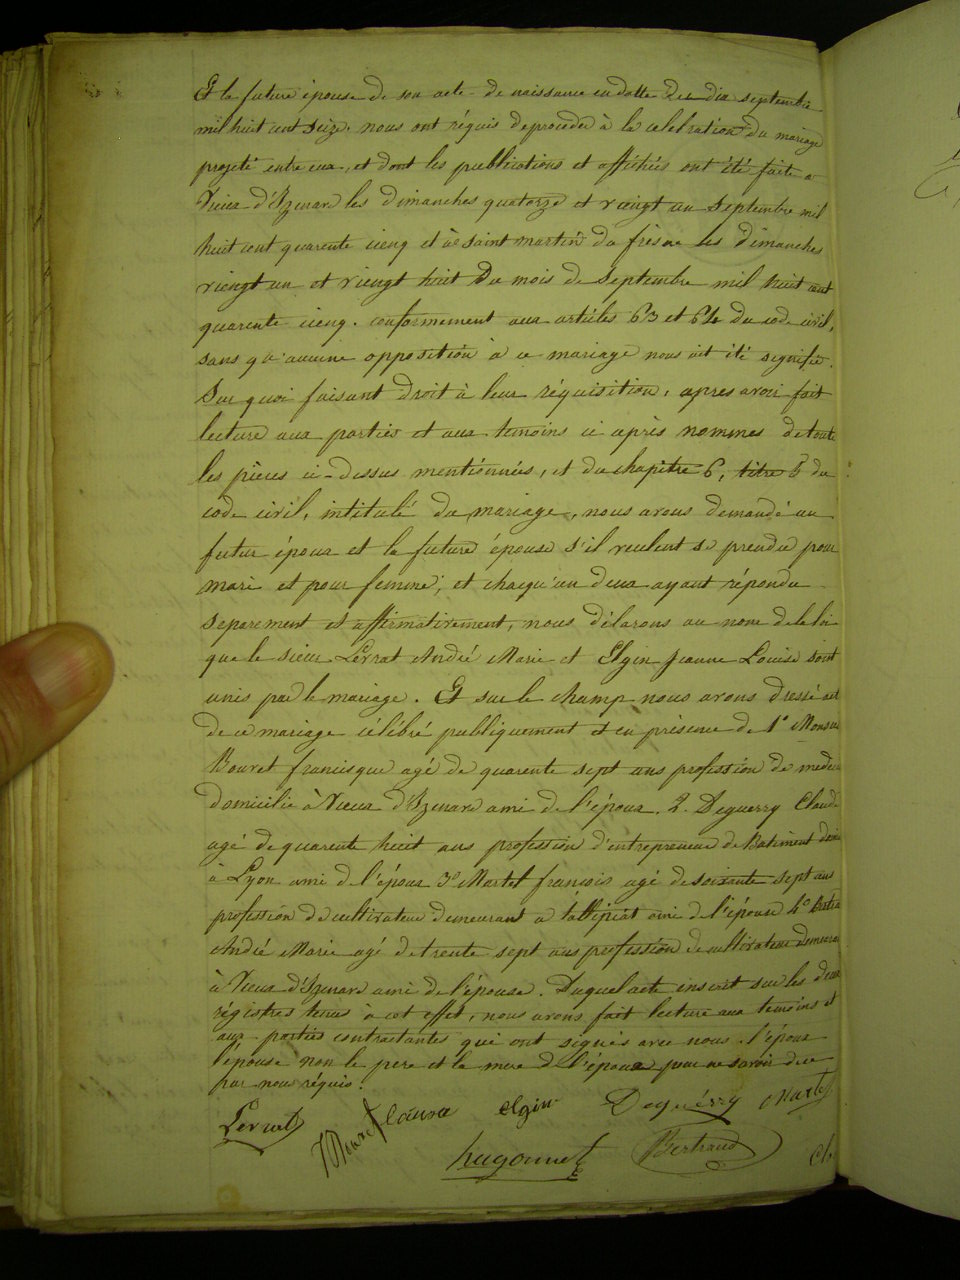 Et la future épouse de son acte de naissance en datte du dix septembre
mil huit cent seize. nous ont réquis de proceder à la celebration du mariage
projeté entre eux, et dont les publications et affiches ont été faite a
Vieux d'Izenave les dimanches quatorze et vingt un septembre mil
huit cent quarente cinq et à saint martin du fresne les dimanches
vingt un et vingt huit du mois de septembre mil huit cent
quarente cinq. conformement aux articles 63 et 64 du code civil,
sans qu'aucune opposition à ce mariage nous ait été signifié.
Sur quoi faisant droit à leur réquisition, apres avoir fait
lecture aux parties et aux temoins ci après nommes de toute
les pièces ci-dessus mentionnées, et du chapitre 6, titre 5 du
code civil, intitulé du mariage, nous avons demandé au
futur époux et la future épouse s'il veulent se prendre pour
mari et pour femme; et chaqu'un deux ayant répondu
separement et affirmativement, nous déclarons au nom de la loi
que le sieur Levrat André Marie et Elgin Jeanne Louise sont
unis par le mariage. Et sur le champ nous avons dressé act
de ce mariage célébré publiquement et en présence de 1° Monsieur
Bouvet francisque agé de quarente sept ans profession de medecin
domicilié à Vieux d'Izenave ami de l'époux. 2. Deguerry Claude
agé de quarente huit ans profession d'entrepreneur de Batiment
à Lyon ami de l'époux 3° Martel francois agé de soixante sept ans
profession de cultivateur demeurant a ami de l'épouse 4°
André Marie agé de trente sept ans profession de cultivateur demeurant
à Vieux d'Izenave ami de l'épouse. Duquel acte inscrit sur les deux
régistres tenus à cet effet, nous avons fait lecture aux temoins et
aux parties contractantes qui ont signés avec nous. l'époux
l'épouse non le pere et la mere de l'époux pour ne savoir de ce
par nous réquis.
Levrat Bouvet Elgin Deguerry Martel
hugonnet Bertrand